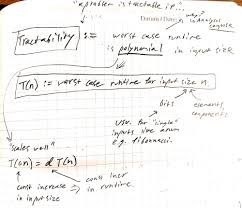 "a problem is tractable if..."
why?
analysis
complex
Tractability := worst case runtime
is polynomial in input size
T(n) := worst case runtime for input size n.
bits
elements,
components
use. for "single"
inputs like a num
e.g. fibonacci.
"scales well"
T(cn) = d T(n)
const incr
in runtime
const increase
in input size